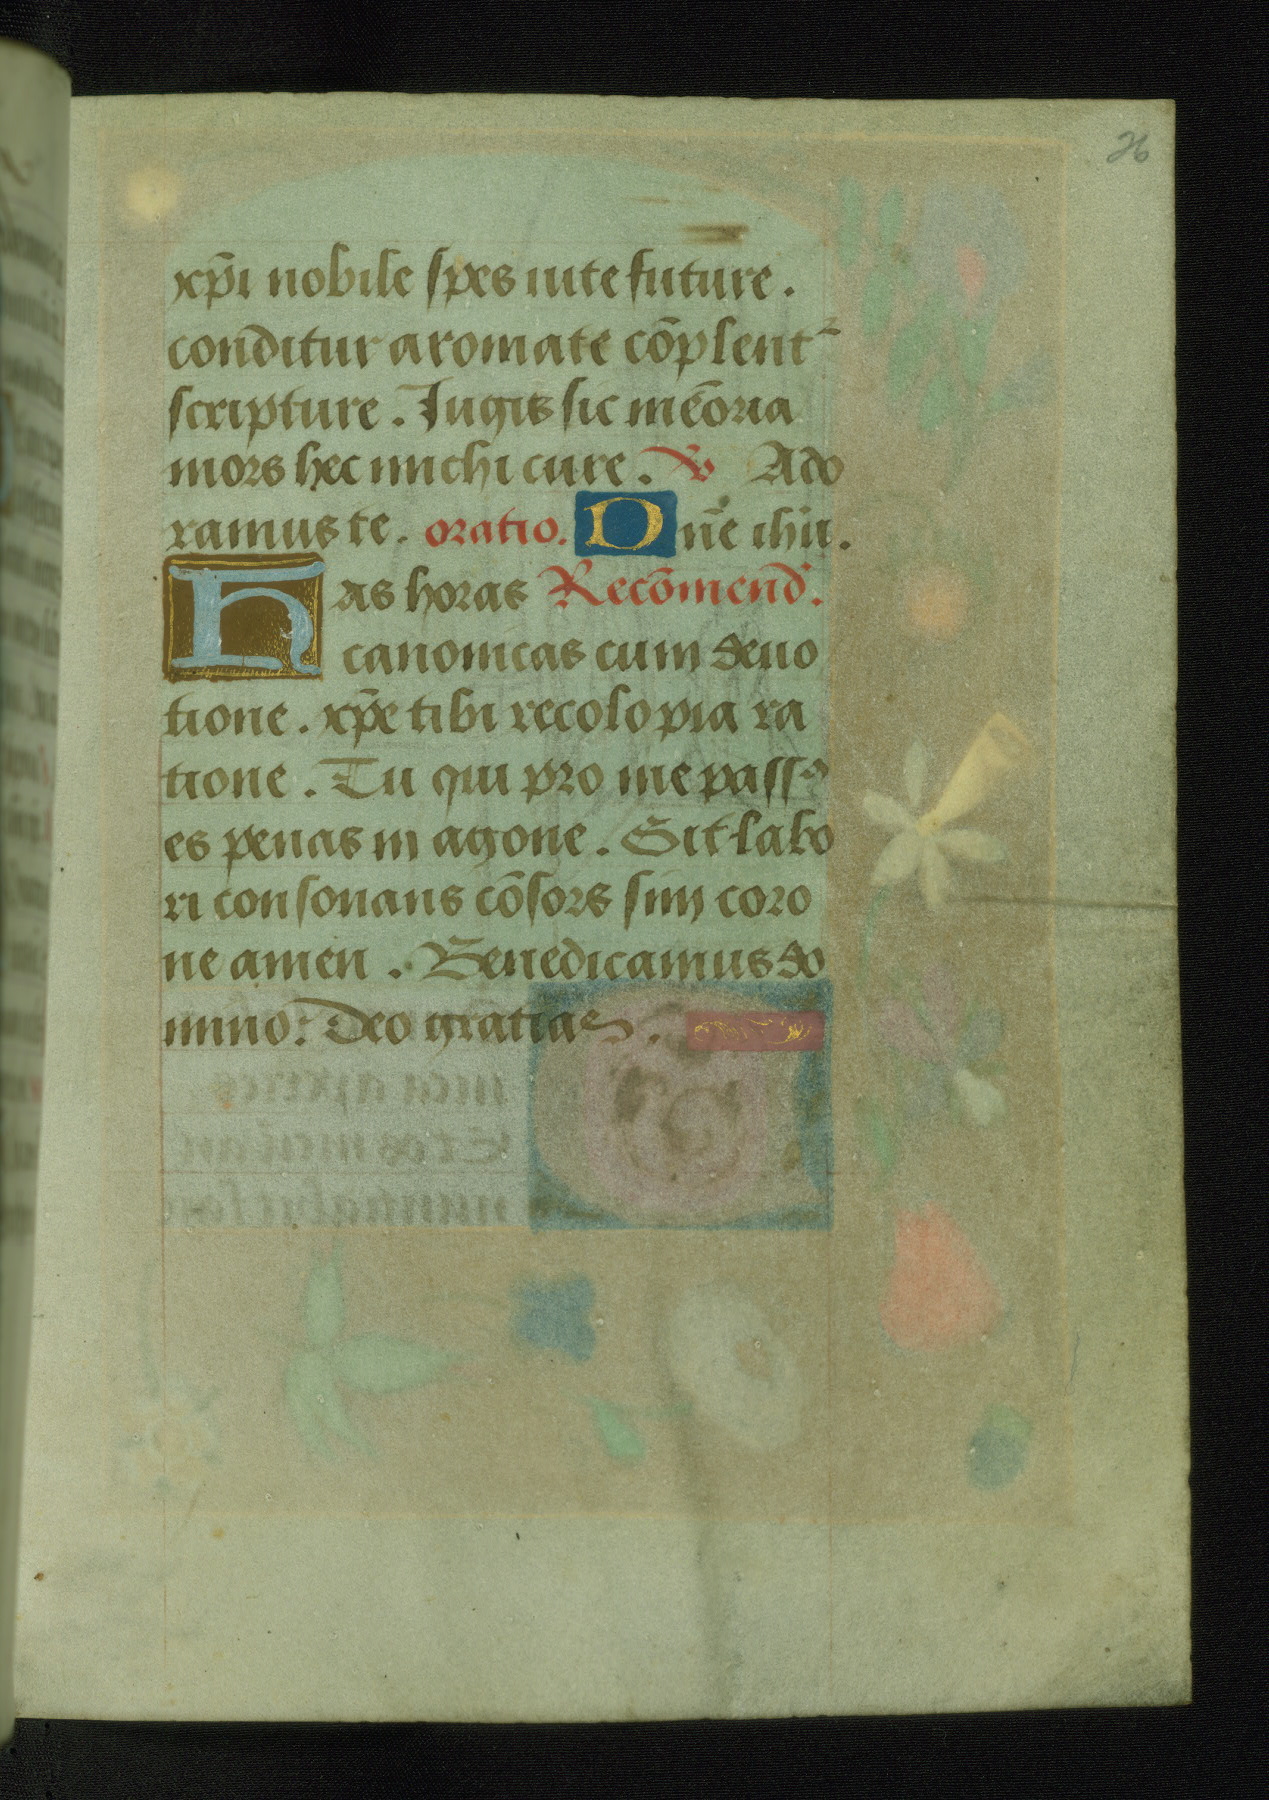 26
xp̄i nobile spes uite future.
conditur aromate cōplent᷑
scripture. Iugis sic mēoria
mors hec michi cure. ℣ Ado
ramus te. oratio. Dn̄e ihū.
Has horas Recōmend'.
canonicas cum deuo
tione. xp̄e tibi recolo pia ra
tione. Tu qui pro me pass
es penas in agone. Sit labo
ri consonans cōsors sim coro
ne amen. Benedicamus do
mino. Deo gratias.